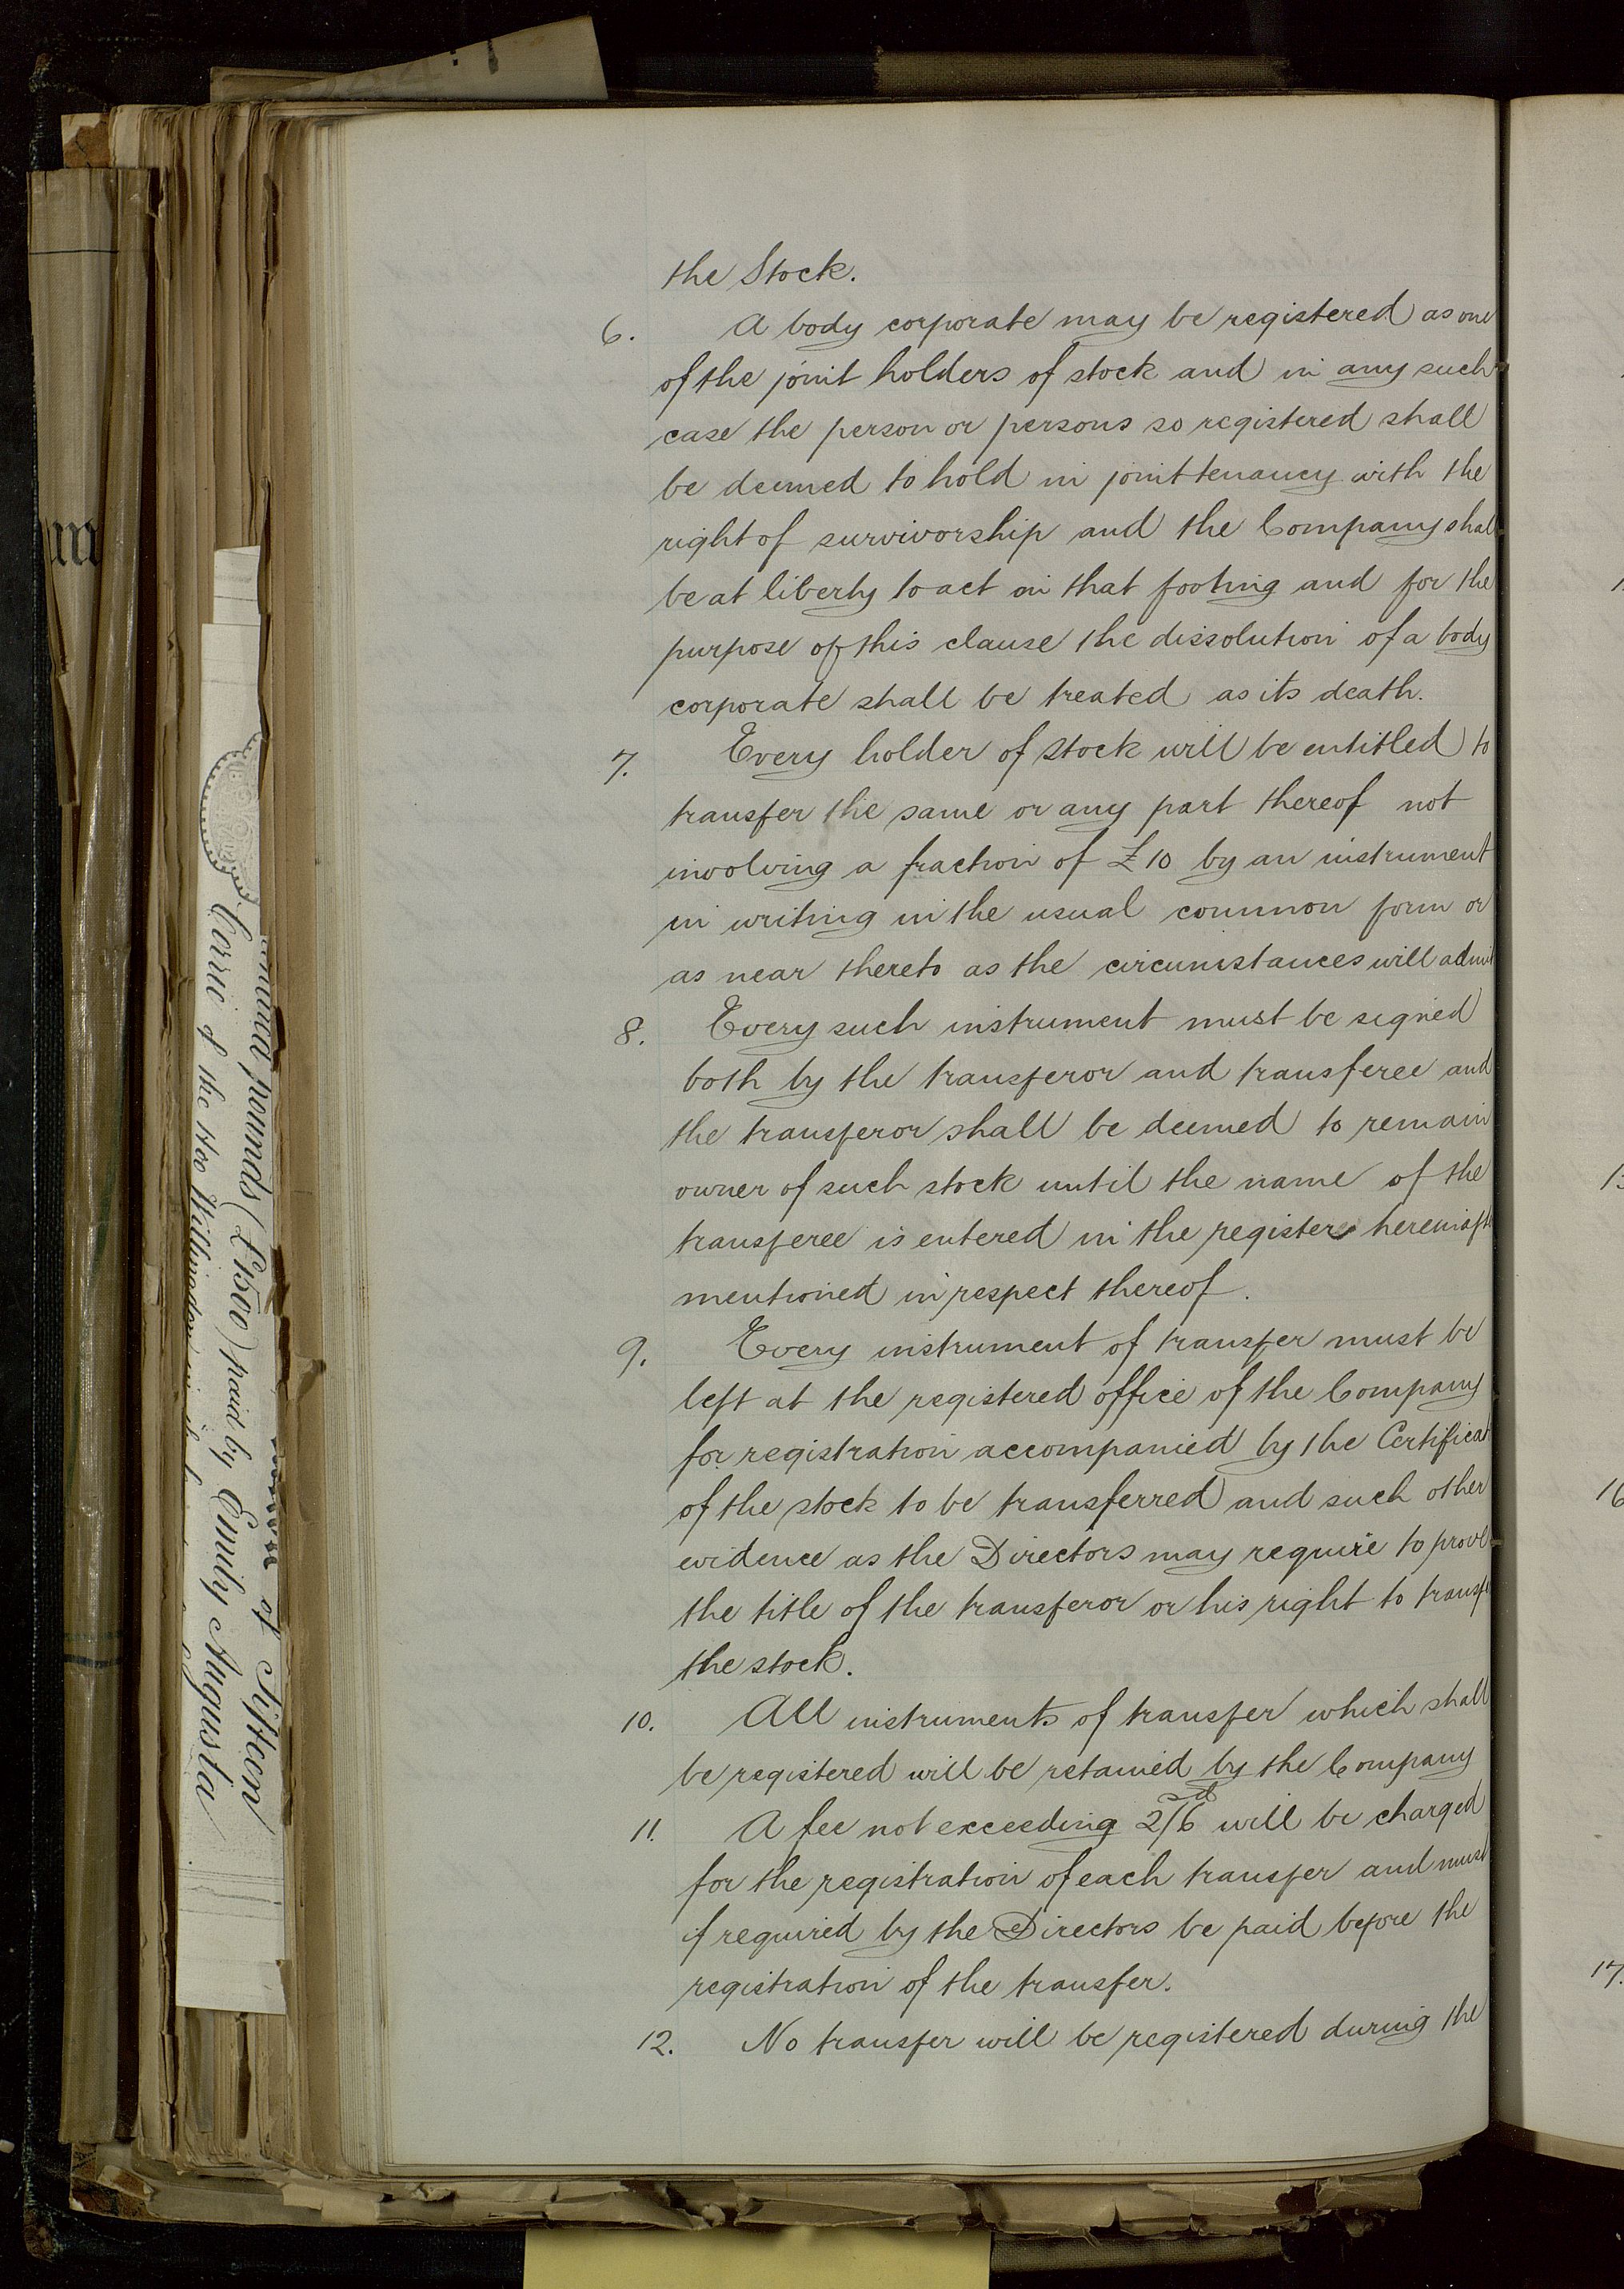 the Stock.
6. A body corporate may be registered as one
of the joint holders of stock and in any such
case the person or persons so registered shall
be deemed to hold in joint tenancy with the
right of survivorship and the Company shall
be at liberty to act on that footing and for the
purpose of this clause the dissolution of a body
corporate shall be treated as its death.
7. Every holder of stock will be entitled to
transfer the same or any part thereof not
involving a fraction of £10 by an instrument
in writing in the usual common form or
as near thereto as the circumstances will admit
8. Every such instrument must be signed
both by the transferor and transferee and
the transferor shall be deemed to remain
owner of such stock until the name of the
transferee is entered in the register hereinaft
mentioned in respect thereof.
9. Every instrument of transfer must be
left at the registered office of the Company
for registration accompanied by the Certificat
of the stock to be transferred and such other
evidence as the Directors may require to prove
the title of the transferor or his right to transfe
the stock.
10. All instruments of transfer which shall
be registered will be retained by the Company
11. A fee not exceeding 2s/6d will be charged
for the registration of each transfer and must
if required by the Directors be paid before the
registration of the transfer.
12. No transfer will be registered during the
of Fifteen
pounds (£1500) paid by Emily Augusta
of the Hoo Willingdon
16
17.